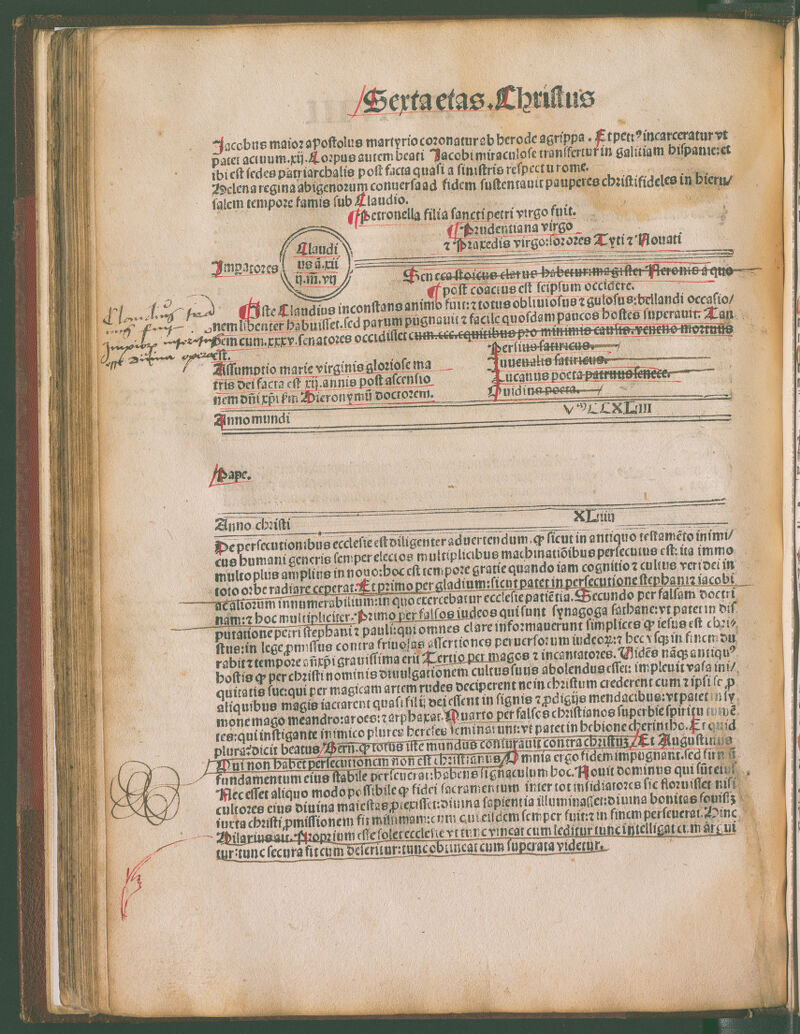 Sexta etas. Christus
Jacobus maior apostolus martyrio coronatur ab herode agrippa. Et petrꝰ incarceratur vt
patet actuum.xij. Corpus autem beati Jacobi miraculose transfertur in galitiam hispanie: et
ibi est sedes patriarchalis post facta quasi a sinistris respectu rome.
Helena regina abigenorum conuersa ad fidem sustentauit pauperes christifideles in hieru/
salem tempore famis sub Claudio.
¶ Petronella filia sancti petri virgo fuit.
¶ Prudentiana virgo
⁊ Praxedis virgo: sorores Tyti ⁊ Nouati
Imperatores
Claudi
us ā.xii
ij.m̄.vij
Seneca stoicus clerus habetur: magister Neronis a quo
¶ post coactus est seipsum occidere.
¶ Iste Claudius inconstans animo fuit: ⁊ totus obliuiosus ⁊ gulosus: bellandi occasio/
nem libenter habuisset. sed parum pugnauit ⁊ facile quosdam paucos hostes superauit: Tan
dem cum.xxxv. senatores occidisset cum.ccc. equitibus pro minimis causis. veneno mortuus
est.
Claudius
Persius satiricus.
Assumptio marie virginis gloriose ma
Juuenalis satiricus.
tris dei facta est xij. annis post ascensio
Lucanus poeta patruus senece.
nem dn̄i xp̄i s̄m Hieronymū doctorem.
Ouidius poeta.
Anno mundi
VᵐCCXLiiij
Pape.
Anno christi
XLiiij
De persecutionibus ecclesie est diligenter aduertendum. ꝙ sicut in antiquo testamēto inimi/
cus humani generis semper electos multiplicibus machinatiōibus persecutus est: ita immo
multo plus amplius in nouo: hoc est tempore gratie quando iam cognitio ⁊ cultus veri dei in
toto orbe radiare ceperat. Et primo per gladium: sicut patet in persecutione stephani ⁊ iacobi
ac aliorum innumerabilium: in quo exercebatur ecclesie patiētia. Secundo per falsam doctri
nam: ⁊ hoc multipliciter. Primo per falsos iudeos qui sunt synagoga sathane: vt patet in dis
putatione petri stephani ⁊ pauli: qui omnes clare informauerunt simplices ꝙ iesus est chri/
stus: in lege ꝓmissus contra friuolas assertiones peruersorum iudeoꝝ: ⁊ hec vsqꝫ in finem du
rabit ⁊ tempore antixp̄i grauissima erit Tertio per magos ⁊ incantatores. Vidēs nāqꝫ antiquꝰ
hostis ꝙ per christi nominis diuulgationem cultus suus abolendus esset: impleuit vasa ini/
quitatis sue: qui per magicam artem rudes deciperent ne in christum crederent cum ⁊ ipsi se ꝓ
aliquibus magis iactarent quasi filij dei essent in signis ⁊ ꝓdigijs mendacibus: vt patet in sy
mone mago meandro: aroes: ⁊ arphaxat. Quarto per falsos christianos superbie spiritu tumē
tes: qui instigante inimico plures hereses seminarunt: vt patet in hebione cherintho. Et quid
plura: dicit beatus Bern̄. ꝙ totus iste mundus coniurauit contra christuꝫ. Et Augustinus
Qui non habet persecutionem non est christianus. Omnia ergo fidem impugnant. sed
fundamentum eius stabile perseuerat: habens signaculum hoc. Nouit dominus qui sūt eius.
Nec esset aliquo modo possibile ꝙ fidei sacramentum inter tot insidiatores sic floruisset nisi
cultores eius diuina maiestas ꝓtexisset: diuina sapientia illuminasset: diuina bonitas fouissꝫ
iuxta christi ꝓmissionem firmissimam: cum qui eisdem semper fuit: ⁊ in finem perseuerat. Hinc
Hilarius ait. Proprium esse solet ecclesie vt tunc vincat cum leditur tunc intelligat cum argui
tur: tunc secura sit cum deseritur: tunc obtineat cum superata videtur.